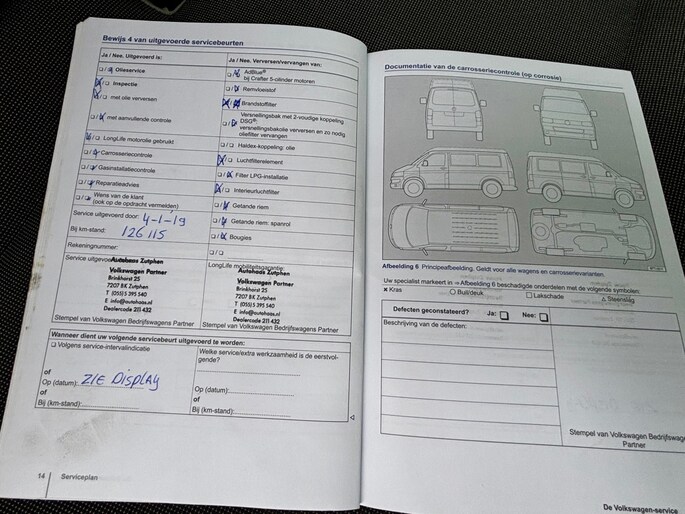 Bewijs 4 van uitgevoerde servicebeurten
Ja / Nee. Uitgevoerd is:
Olieservice
Inspectie
met olie verversen
met aanvullende controle
LongLife motorolie gebruikt
Carrosseriecontrole
Gasinstallatiecontrole
Reparatieadvies
Wens van de klant
(ook op de opdracht vermelden)
Service uitgevoerd door: 4-1-19
Bij km-stand: 126115
Rekeningnummer:
Service uitgevoerd
Autohaas Zutphen
Volkswagen Partner
Brinkhorst 25
7207 BK Zutphen
T (055) 5 395 540
E info@autohaas.nl
Dealercode 211 432
Stempel van Volkswagen Bedrijfswagens Partner
Ja / Nee. Verversen/vervangen van:
AdBlue®
bij Crafter 5-cilinder motoren
Remvloeistof
Brandstoffilter
Versnellingsbak met 2-voudige koppeling
DSG®:
versnellingsbakolie verversen en zo nodig
oliefilter vervangen
Haldex-koppeling: olie
Luchtfilterelement
Filter LPG-installatie
Interieurluchtfilter
Getande riem
Getande riem: spanrol
Bougies
LongLife mobiliteitsgarantie:
Autohaas Zutphen
Volkswagen Partner
Brinkhorst 25
7207 BK Zutphen
T (055) 5 395 540
E info@autohaas.nl
Dealercode 211 432
Stempel van Volkswagen Bedrijfswagens Partner
Wanneer dient uw volgende servicebeurt uitgevoerd te worden:
Volgens service-intervalindicatie
of
Op (datum): ZIE DISPLAY
of
Bij (km-stand):
Welke service/extra werkzaamheid is de eerstvol-
gende?
Op (datum):
of
Bij (km-stand):
14
Serviceplan
Documentatie van de carrosseriecontrole (op corrosie)
Afbeelding 6 Principeafbeelding. Geldt voor alle wagens en carrosserievarianten.
Uw specialist markeert in ⇒ Afbeelding 6 beschadigde onderdelen met de volgende symbolen:
× Kras
○ Buil/deuk
□ Lakschade
△ Steenslag
Defecten geconstateerd?
Ja:
Nee:
Beschrijving van de defecten:
Stempel van Volkswagen Bedrijfswagens
Partner
De Volkswagen-service